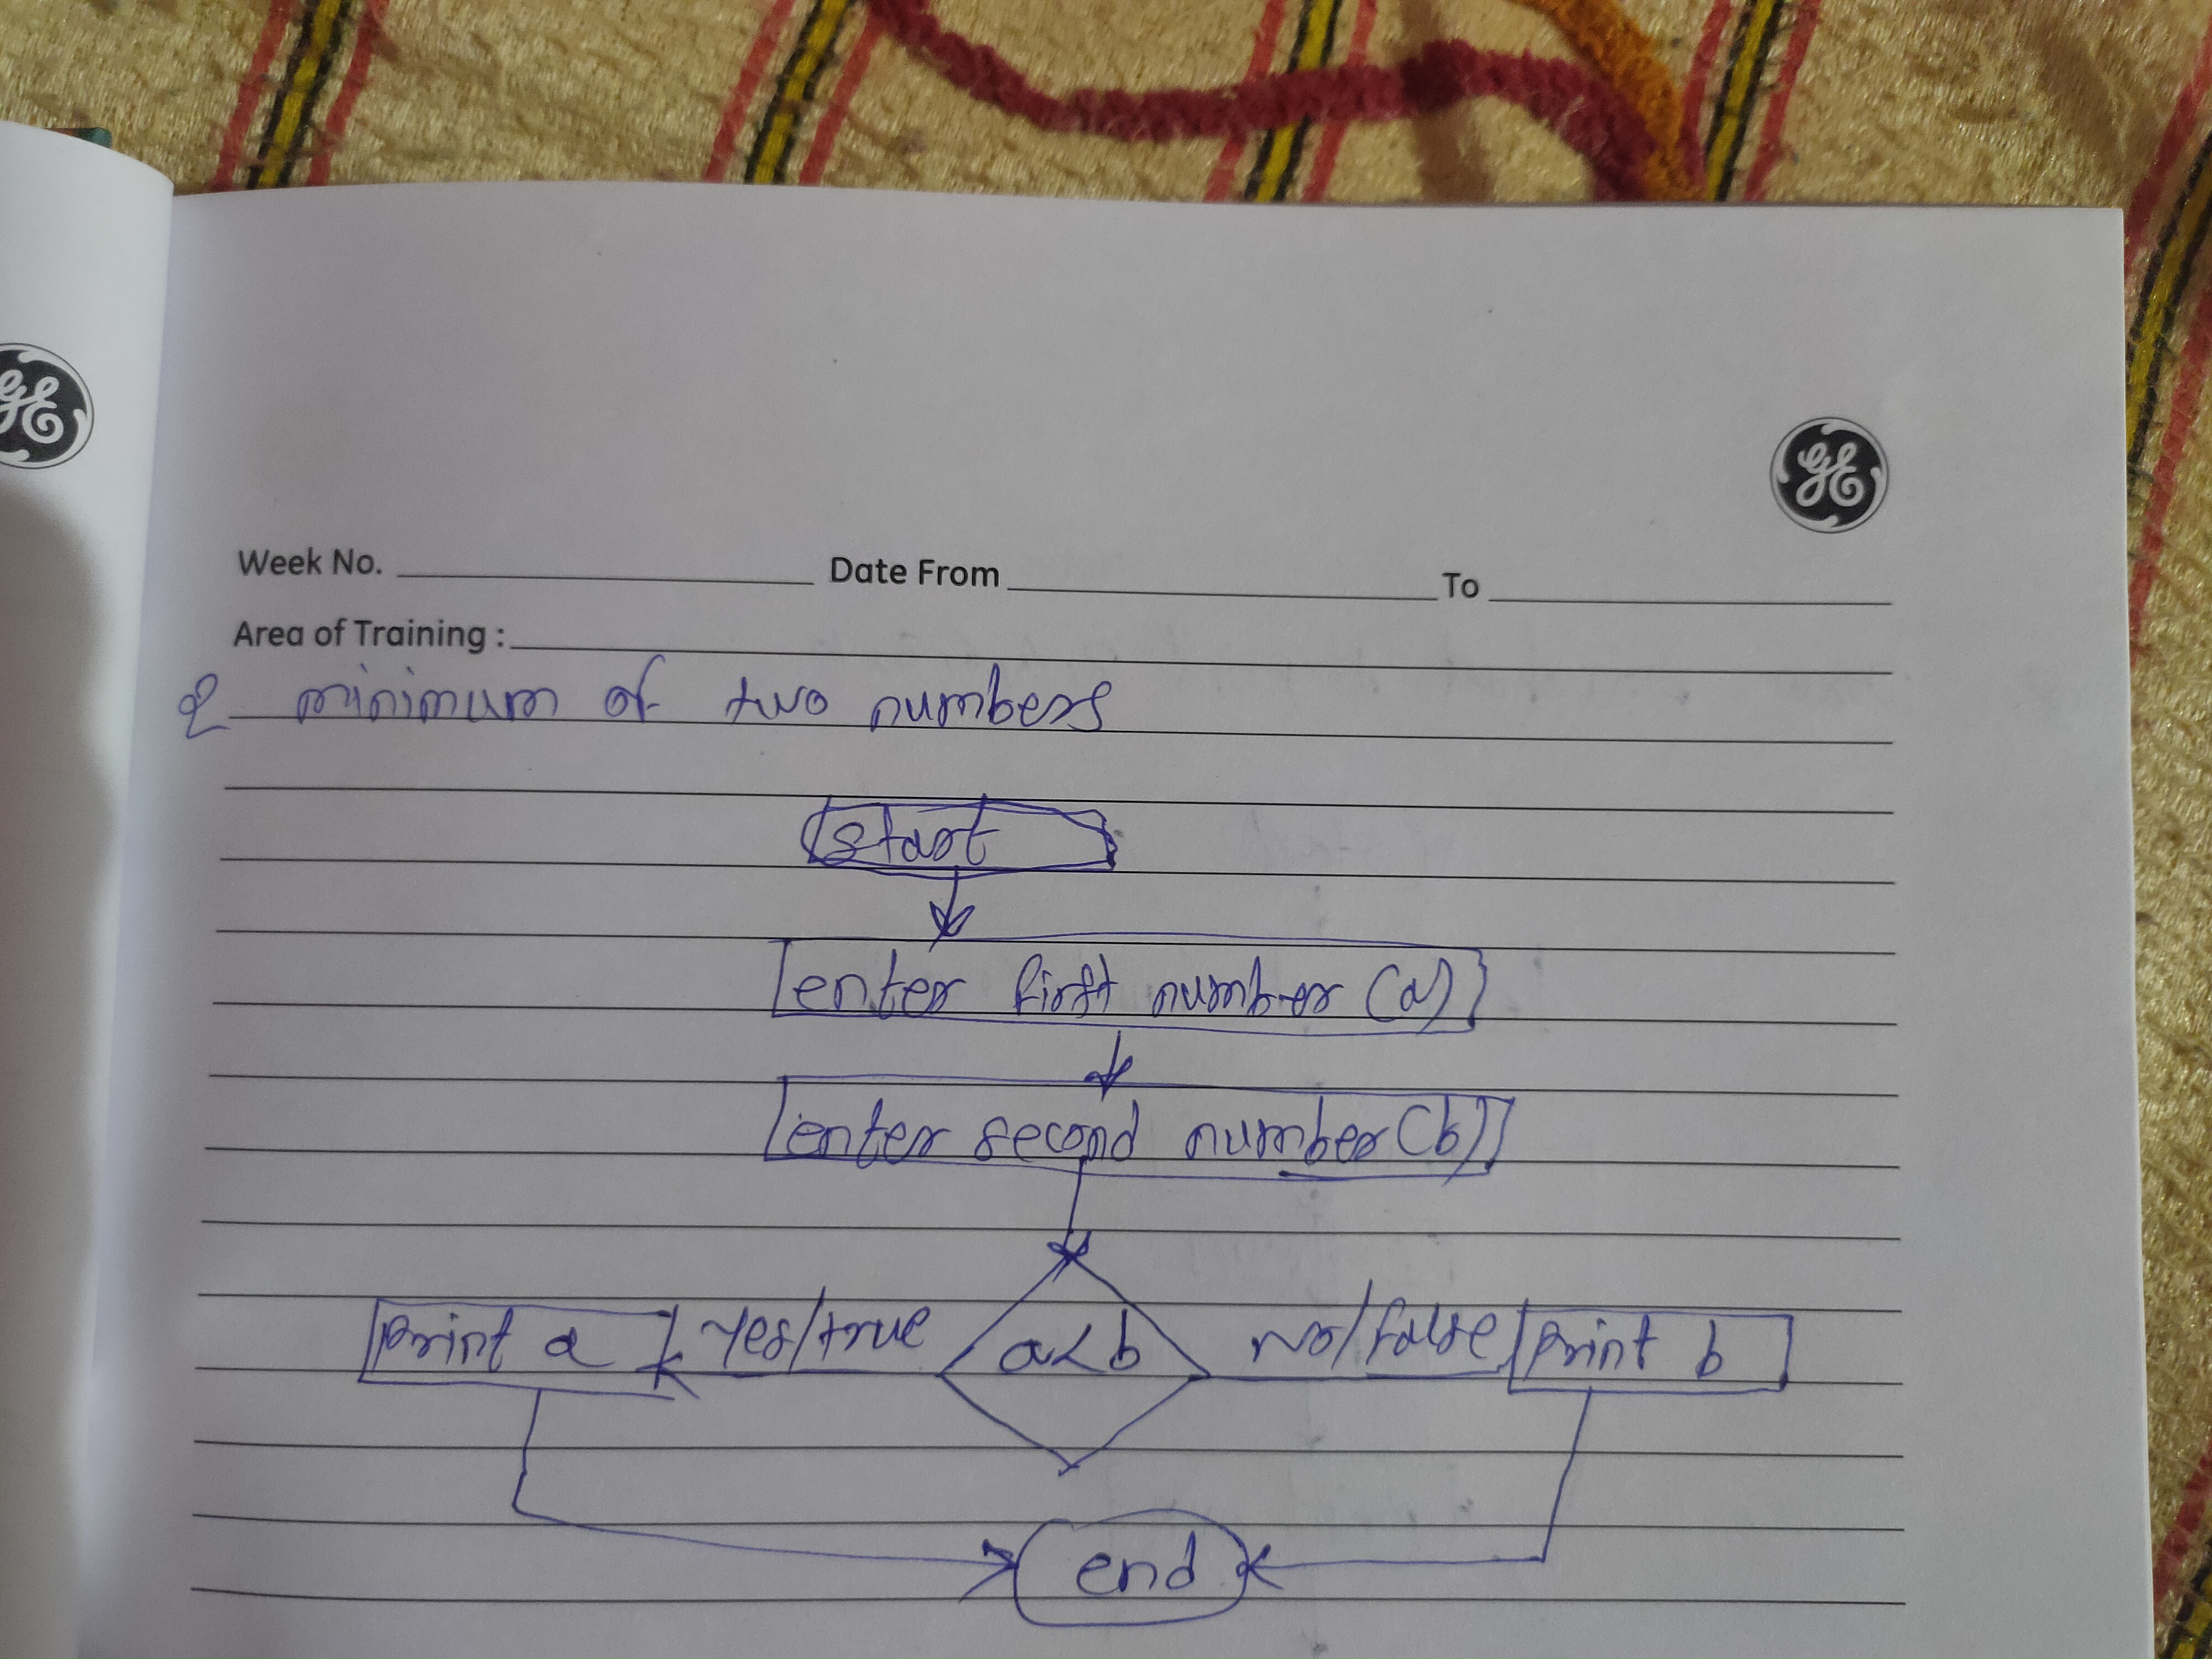 GE
GE
Week No. Date From To
Area of Training :
2 minimum of two numbers
start
enter first number (a)
enter second number (b)
print a yes/true a<b no/false print b
end